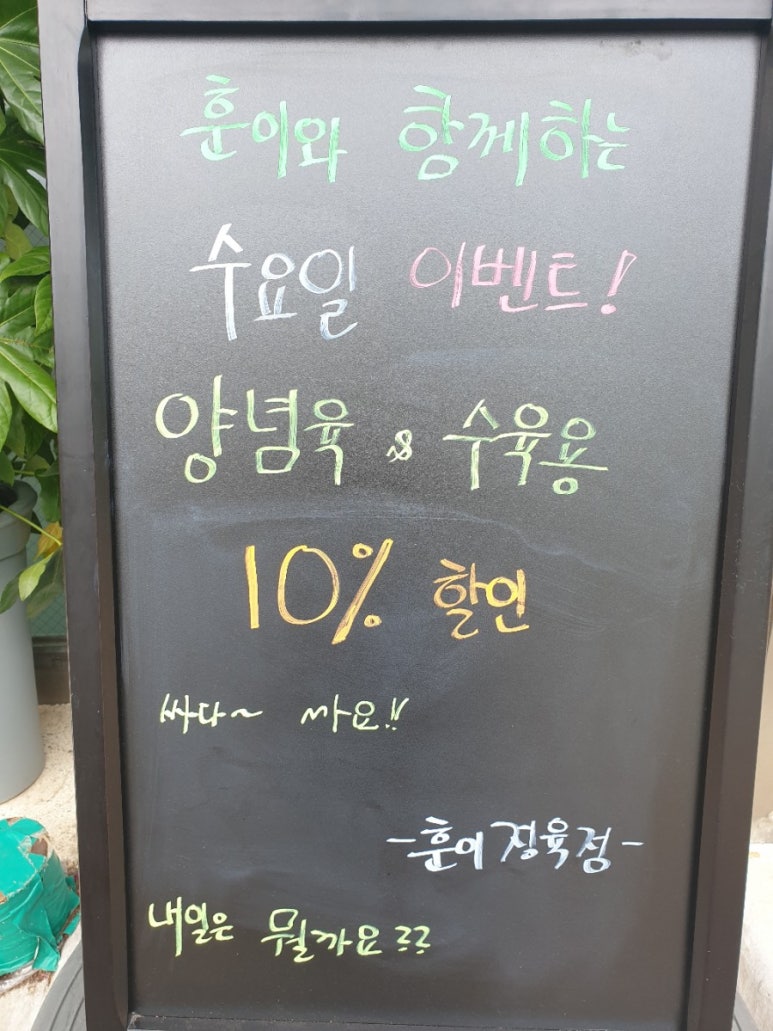 훈이와 함께하는
수요일 이벤트!
양념육 & 수육용
10% 할인
싸다~ 싸요!!
-훈이정육점-
내일은 뭘까요??